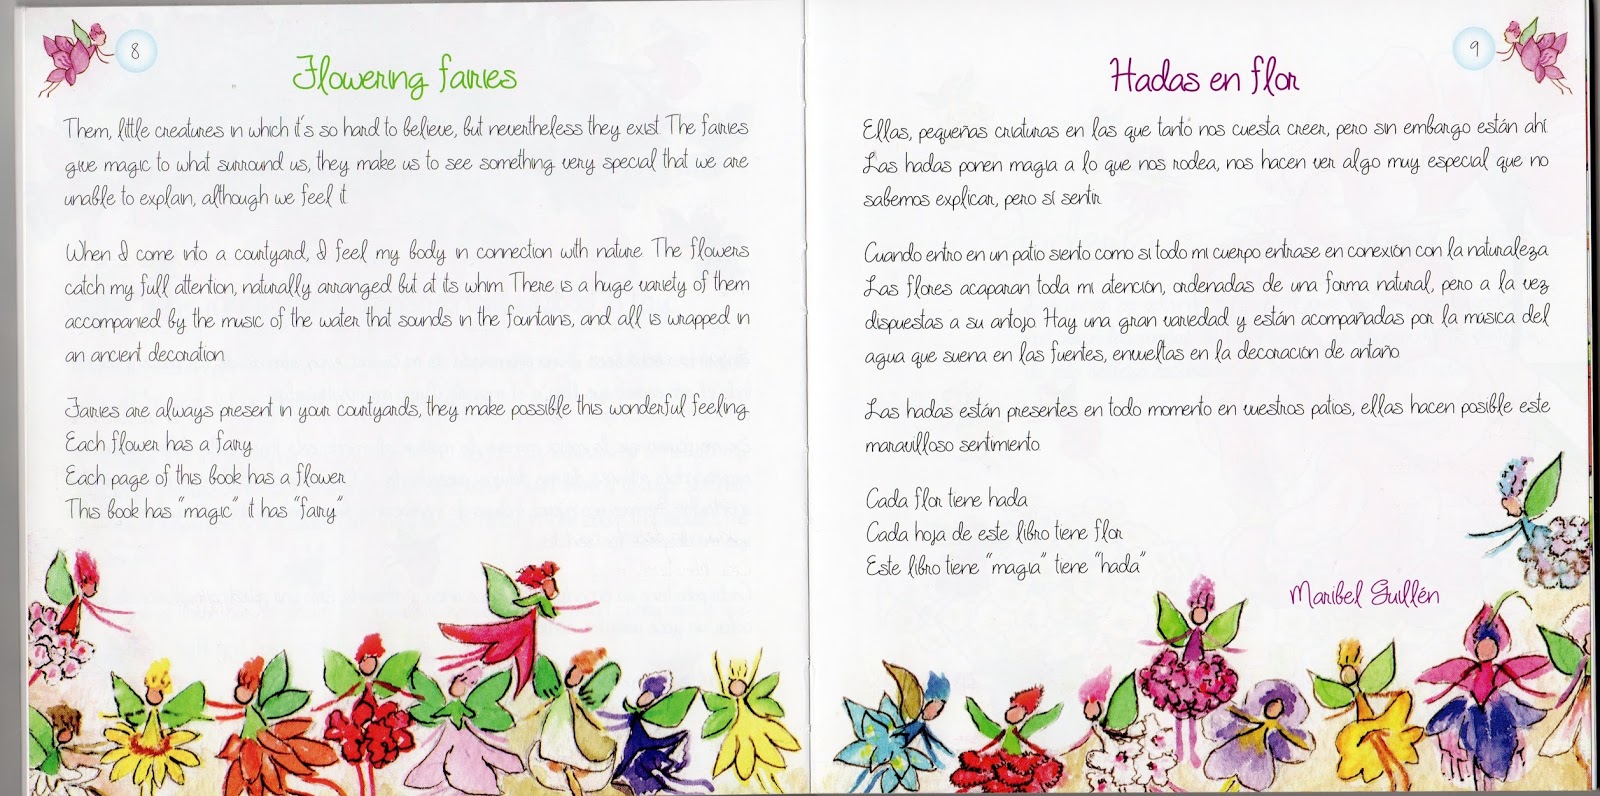 8
Flowering fairies
Them, little creatures in which it's so hard to believe, but nevertheless they exist. The fairies
give magic to what surround us, they make us to see something very special that we are
unable to explain, although we feel it.
When I come into a courtyard, I feel my body in connection with nature. The flowers
catch my full attention, naturally arranged but at its whim. There is a huge variety of them
accompanied by the music of the water that sounds in the fountains, and all is wrapped in
an ancient decoration.
Fairies are always present in your courtyards, they make possible this wonderful feeling.
Each flower has a fairy
Each page of this book has a flower
This book has "magic" it has "fairy"
9
Hadas en flor
Ellas, pequeñas criaturas en las que tanto nos cuesta creer, pero sin embargo están ahí.
Las hadas ponen magia a lo que nos rodea, nos hacen ver algo muy especial que no
sabemos explicar, pero sí sentir.
Cuando entro en un patio siento como si todo mi cuerpo entrase en conexión con la naturaleza.
Las flores acaparan toda mi atención, ordenadas de una forma natural, pero a la vez
dispuestas a su antojo. Hay una gran variedad y están acompañadas por la música del
agua que suena en las fuentes, envueltas en la decoración de antaño.
Las hadas están presentes en todo momento en vuestros patios, ellas hacen posible este
maravilloso sentimiento.
Cada flor tiene hada
Cada hoja de este libro tiene flor
Este libro tiene "magia" tiene "hada"
Maribel Guillén